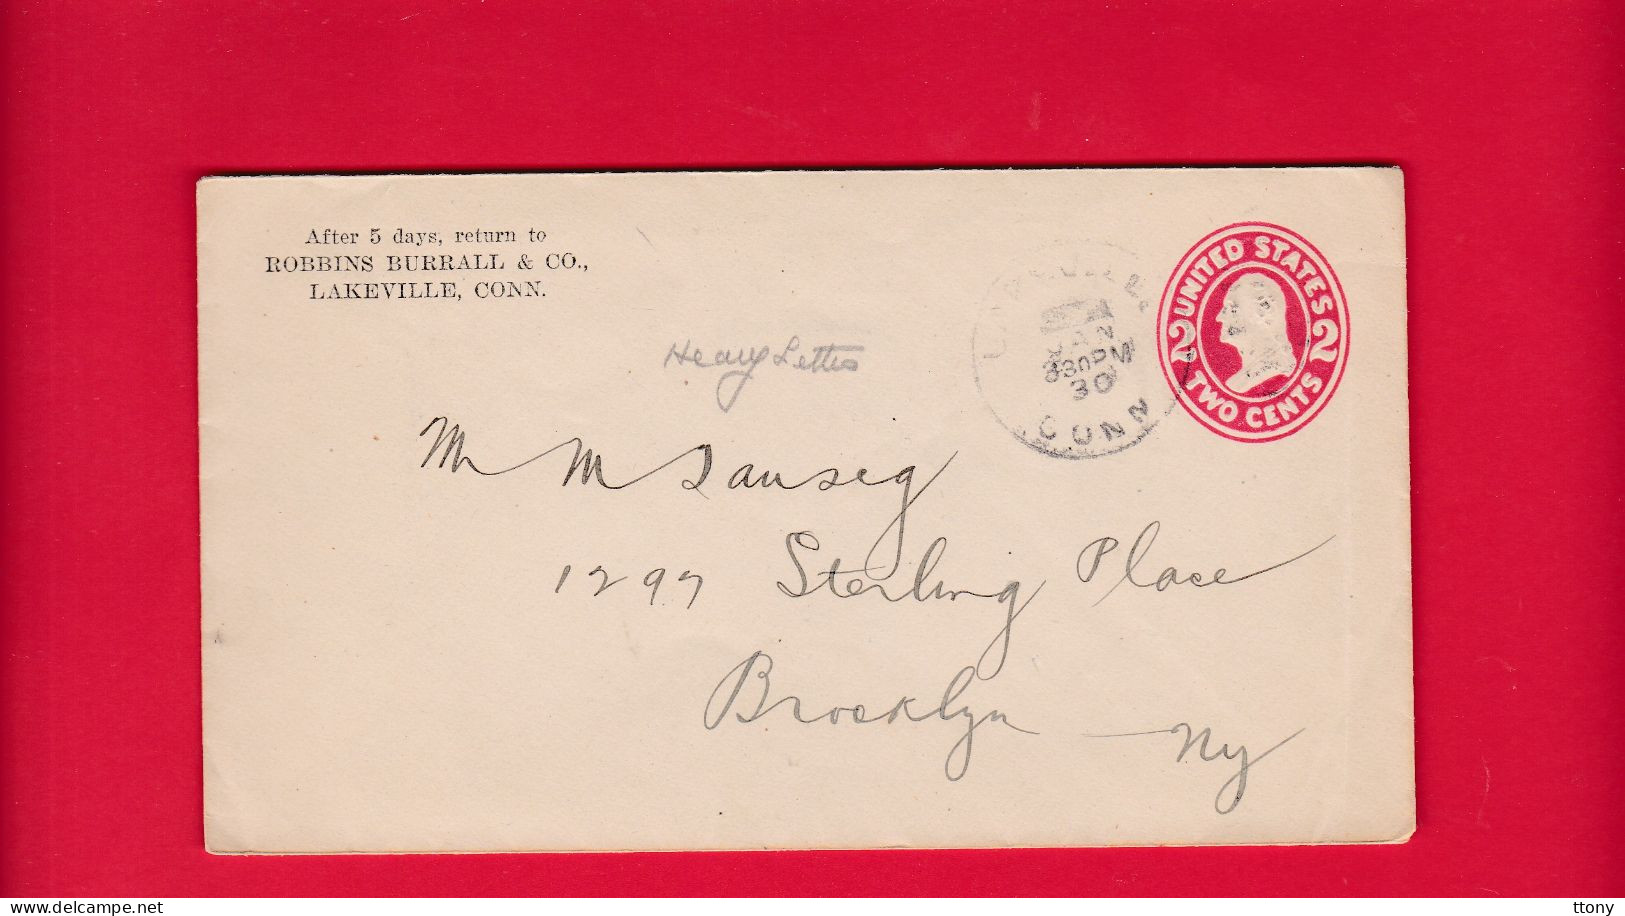 After 5 days, return to
ROBBINS BURRALL & CO.,
LAKEVILLE, CONN.
UNITED STATES
2 2
TWO CENTS
JAN
830PM
30
CONN
Heavy Letter
Mr M
1297 Sterling Place
Brooklyn
Ny
delcampe.net
ttony